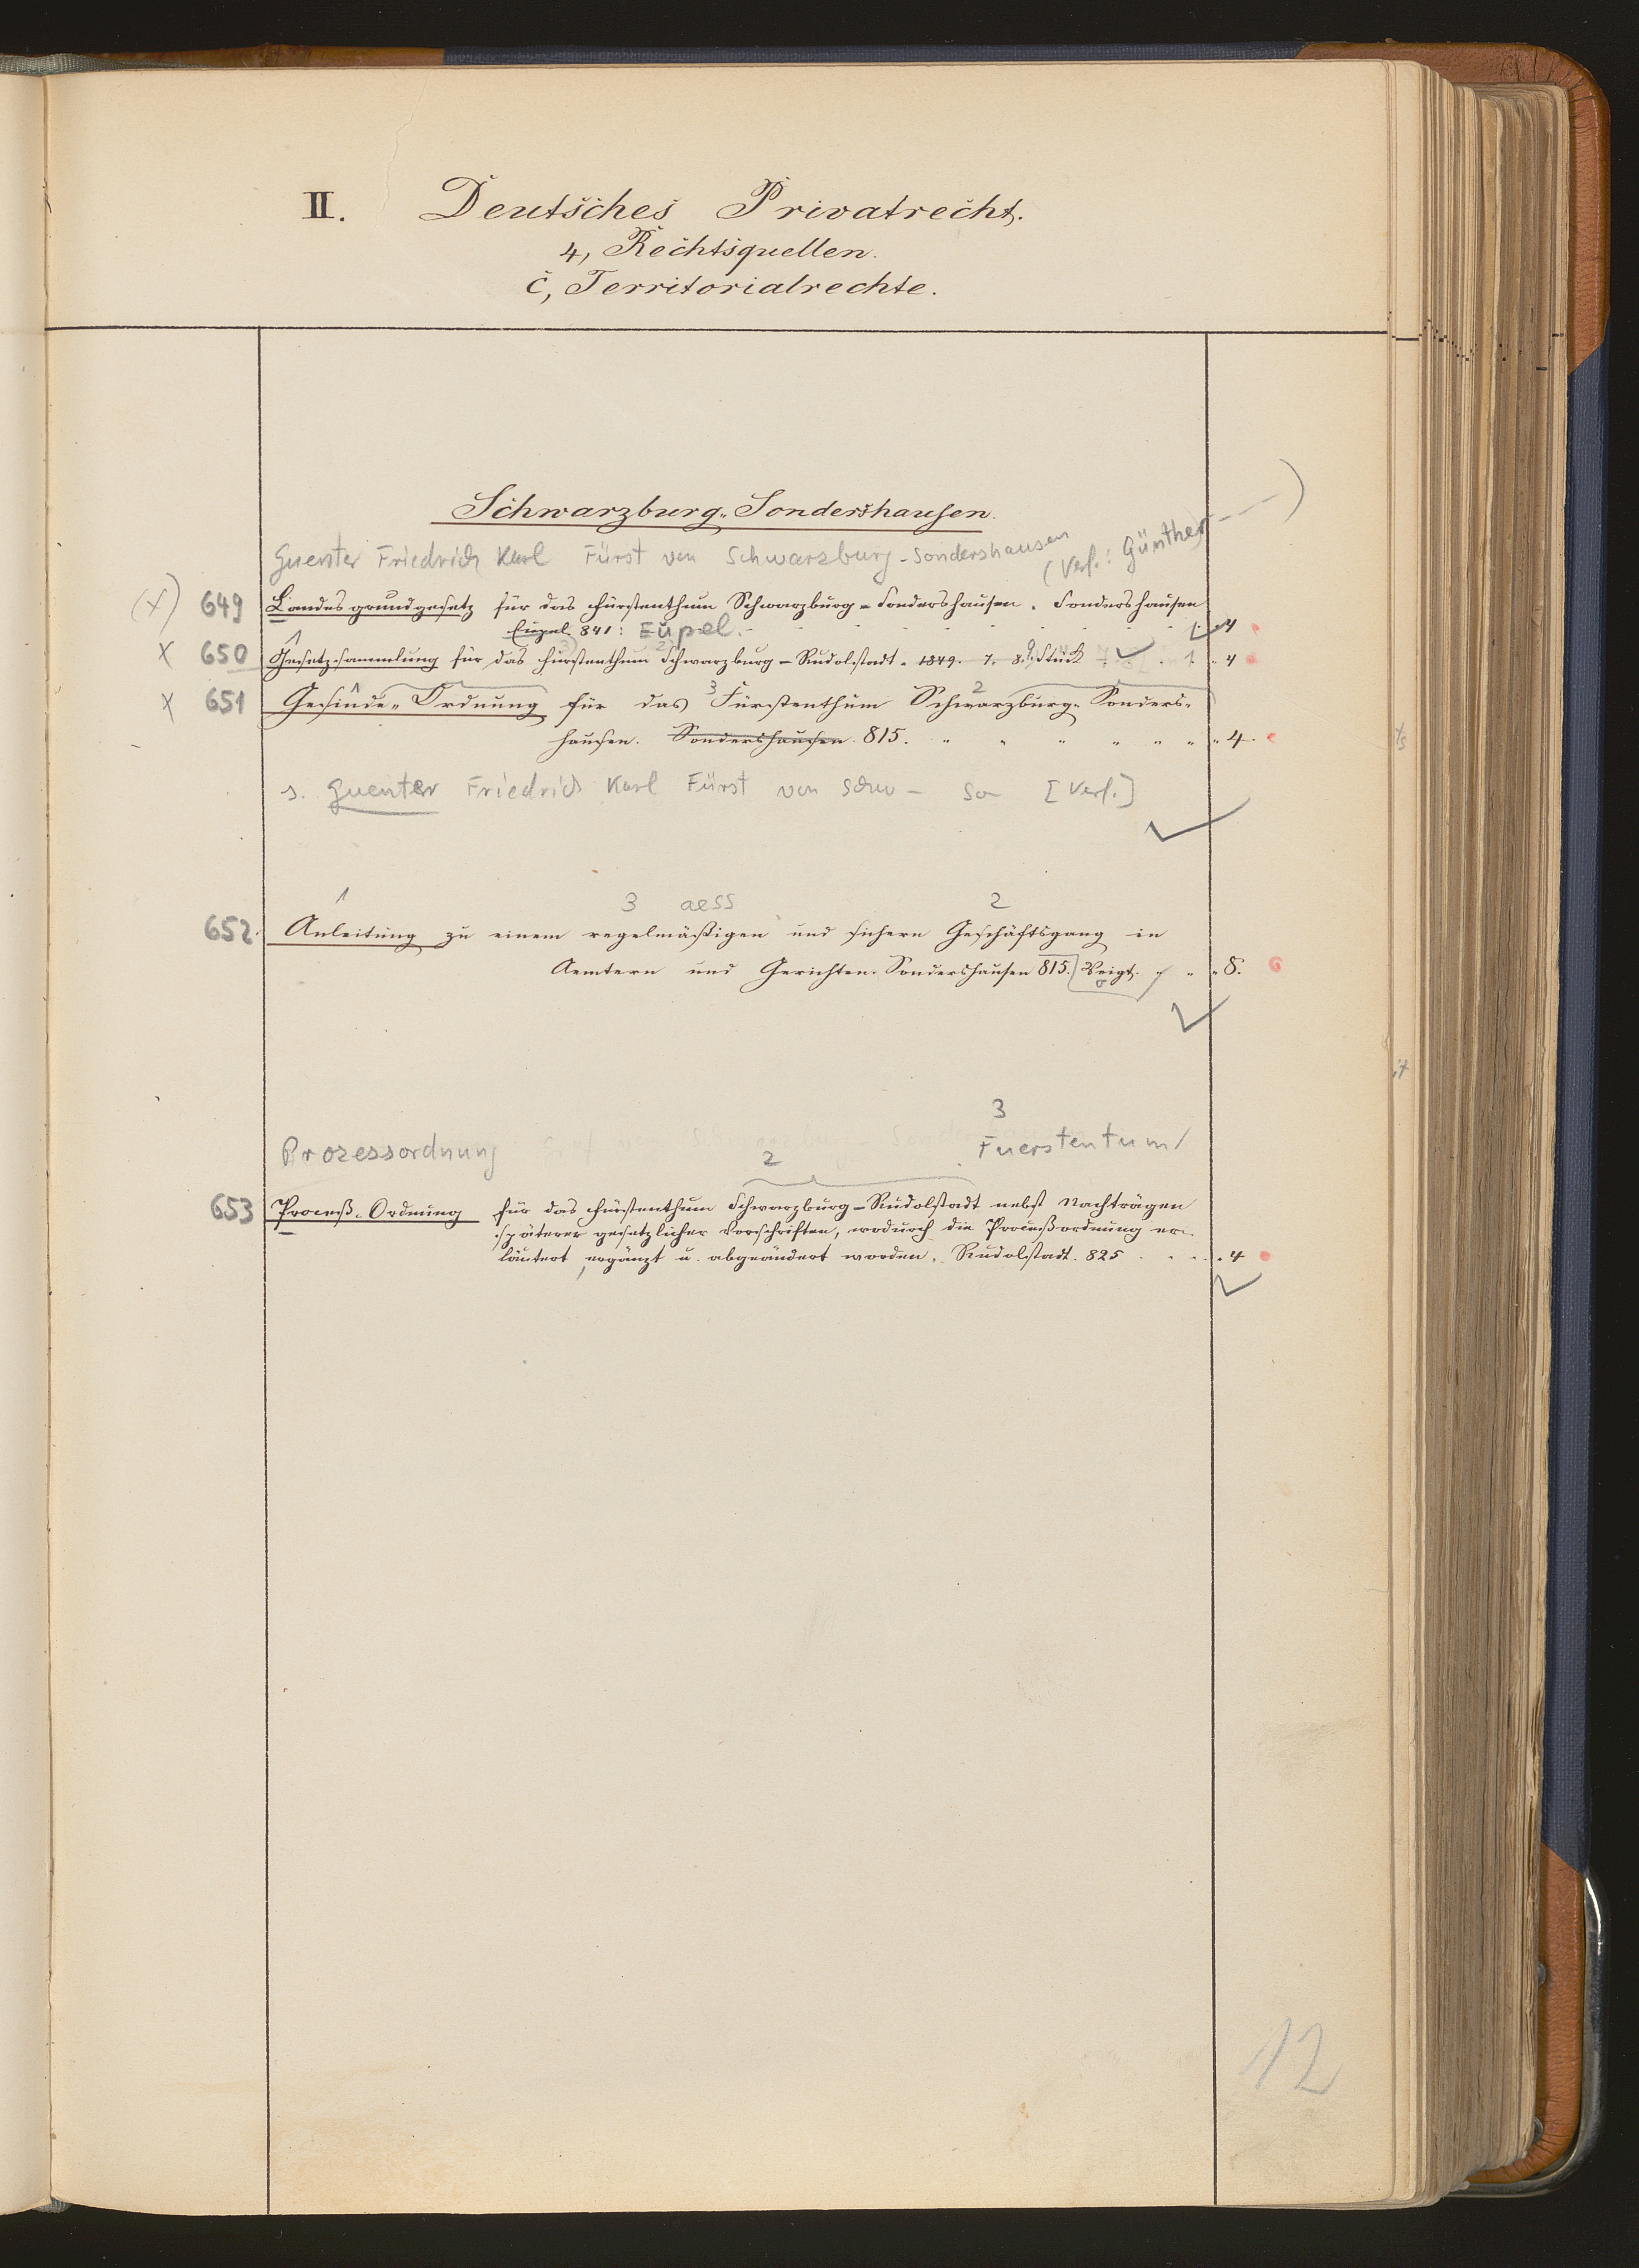 II. Deutsches Privatrecht.
4, Rechtsquellen.
c, Territorialrechte.
Schwarzburg-Sondershausen.
Guenter Friedrich Karl Fürst von Schwarzburg-Sondershausen (Verf.: Günther - - -)
(x) 649 Landesgrundgesetz für das Fürstenthum Schwarzburg-Sondershausen. Sondershausen
Eupel. 841: Eupel. 4
x 650 Gesetzsammlung für das Fürstenthum Schwarzburg-Rudolstadt. 1849. 7. 8. 9. Stück 4
1 3 2
x 651 Gesinde-Ordnung für das Fürstenthum Schwarzburg-Sonders-
hausen. Sondershausen. 815. 4.
s. Guenter Friedrich Karl Fürst von Schw- So [Verf.]
1 3 aess 2
652. Anleitung zu einem regelmäßigen und sichern Geschäftsgang in
Aemtern und Gerichten. Sondershausen 815. Voigt. 8.
3
Prozessordnung Fuerstentum/
2
653 Proceß-Ordnung für das Fürstenthum Schwarzburg-Rudolstadt nebst Nachträgen
späterer gesetzlicher Vorschriften, wodurch die Proceßordnung er-
läutert, ergänzt u. abgeändert worden. Rudolstadt. 825 4
12